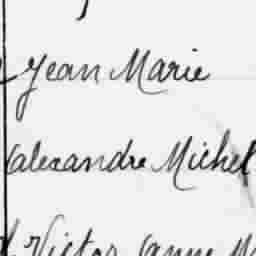 Jean Marie
Alexandre Michel
Victor Anne M